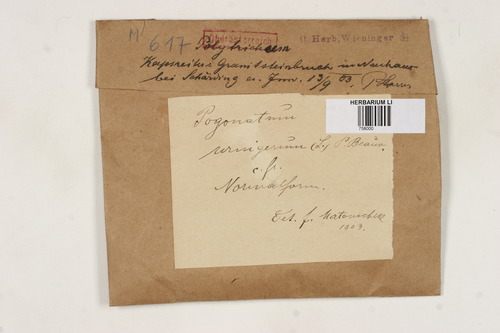 M 617 Polytrichum
Oberösterreich
Herb. Wieninger
Kapsreiter Granitsteinbruch in Neuhaus
bei Schärding a. Inn. 13/9 03.
HERBARIUM LI
758000
Pogonatum
urnigerum (L) P. Beauv.
c. fr.
Normalform.
Det. f. Matouschek
1903.